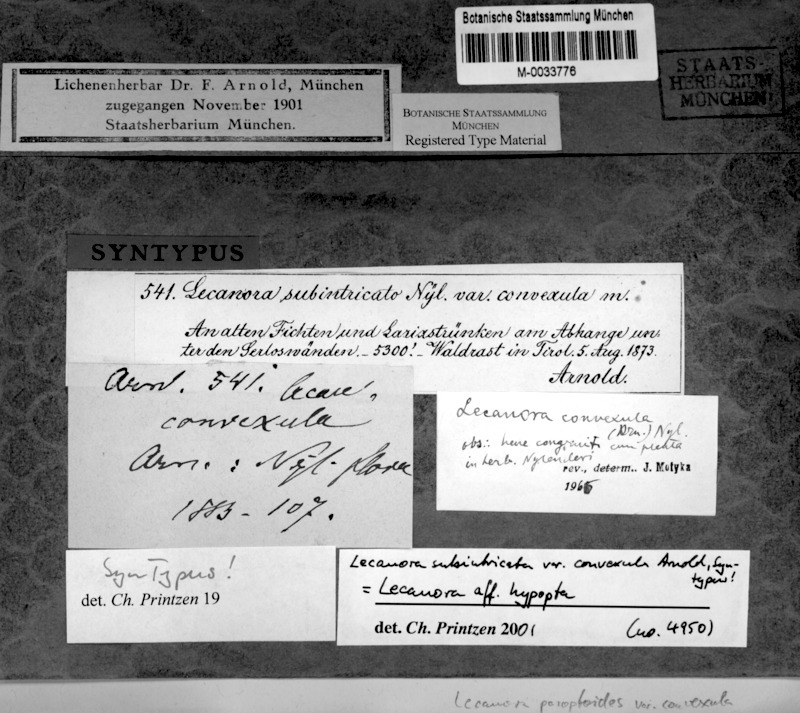 Botanische Staatssammlung München
M-0033776
STAATS-
HERBARIUM
MÜNCHEN
Lichenenherbar Dr. F. Arnold, München
zugegangen November 1901
Staatsherbarium München.
BOTANISCHE STAATSSAMMLUNG
MÜNCHEN
Registered Type Material
SYNTYPUS
541. Lecanora subintricato Nyl. var. convexula m.
An alten Fichten und Larixstrünken am Abhange un-
ter den Serloswänden. – 5300'. – Waldrast in Tirol. 5. Aug. 1873.
Arnold.
Arn. 541. lecan.
convexula
Arn. : Nyl. Flora
1883 – 107.
Lecanora convexula
(Arn.) Nyl.
obs.: bene congruit cum
in herb. Nylanderi
rev., determ.. J. Motyka
1965
SynTypus!
det. Ch. Printzen 19
Lecanora subintricata var. convexula Arnold, Syn-
typus!
= Lecanora aff. hypopta
det. Ch. Printzen 2001 (no. 4950)
Lecanora paroptoides var. convexula